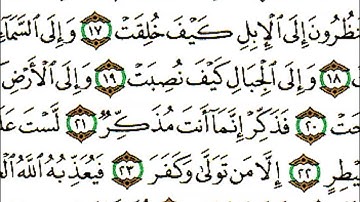 نظُرُونَ إِلَى ٱلْإِبِلِ كَيْفَ خُلِقَتْ ١٧ وَإِلَى ٱلسَّمَا
١٨ وَإِلَى ٱلْجِبَالِ كَيْفَ نُصِبَتْ ١٩ وَإِلَى ٱلْأَرْضِ
حَتْ ٢٠ فَذَكِّرْ إِنَّمَآ أَنتَ مُذَكِّرٌ ٢١ لَّسْتَ عَلَ
يْطِرٍ ٢٢ إِلَّا مَن تَوَلَّىٰ وَكَفَرَ ٢٣ فَيُعَذِّبُهُ ٱللَّهُ ٱلْعَ